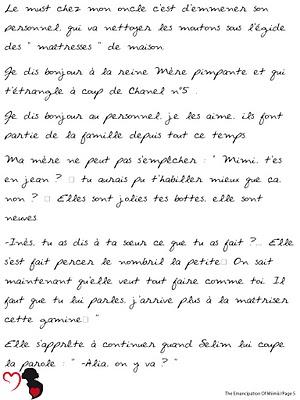 Le must chez mon oncle c'est d'emmener son
personnel, qui va nettoyer les moutons sous l'égide
des " maîtresses " de maison.
Je dis bonjour à la reine Mère pimpante et qui
t'étrangle à coup de Chanel n°5 .
Je dis bonjour au personnel, je les aime, ils font
partie de la famille depuis tout ce temps.
Ma mère ne peut pas s'empêcher : " Mimi, t'es
en jean ? □ tu aurais pu t'habiller mieux que ça,
non ? □ Elles sont jolies tes bottes, elle sont
neuves.
-Inès, tu as dis à ta sœur ce que tu as fait ?... Elle
s'est fait percer le nombril la petite□ On sait
maintenant qu'elle veut tout faire comme toi. Il
faut que tu lui parles, j'arrive plus à la maîtriser
cette gamine□ "
Elle s'apprête à continuer quand Selim lui coupe
la parole : " -Alia, on y va ? "
The Emancipation Of Miimii| Page 5